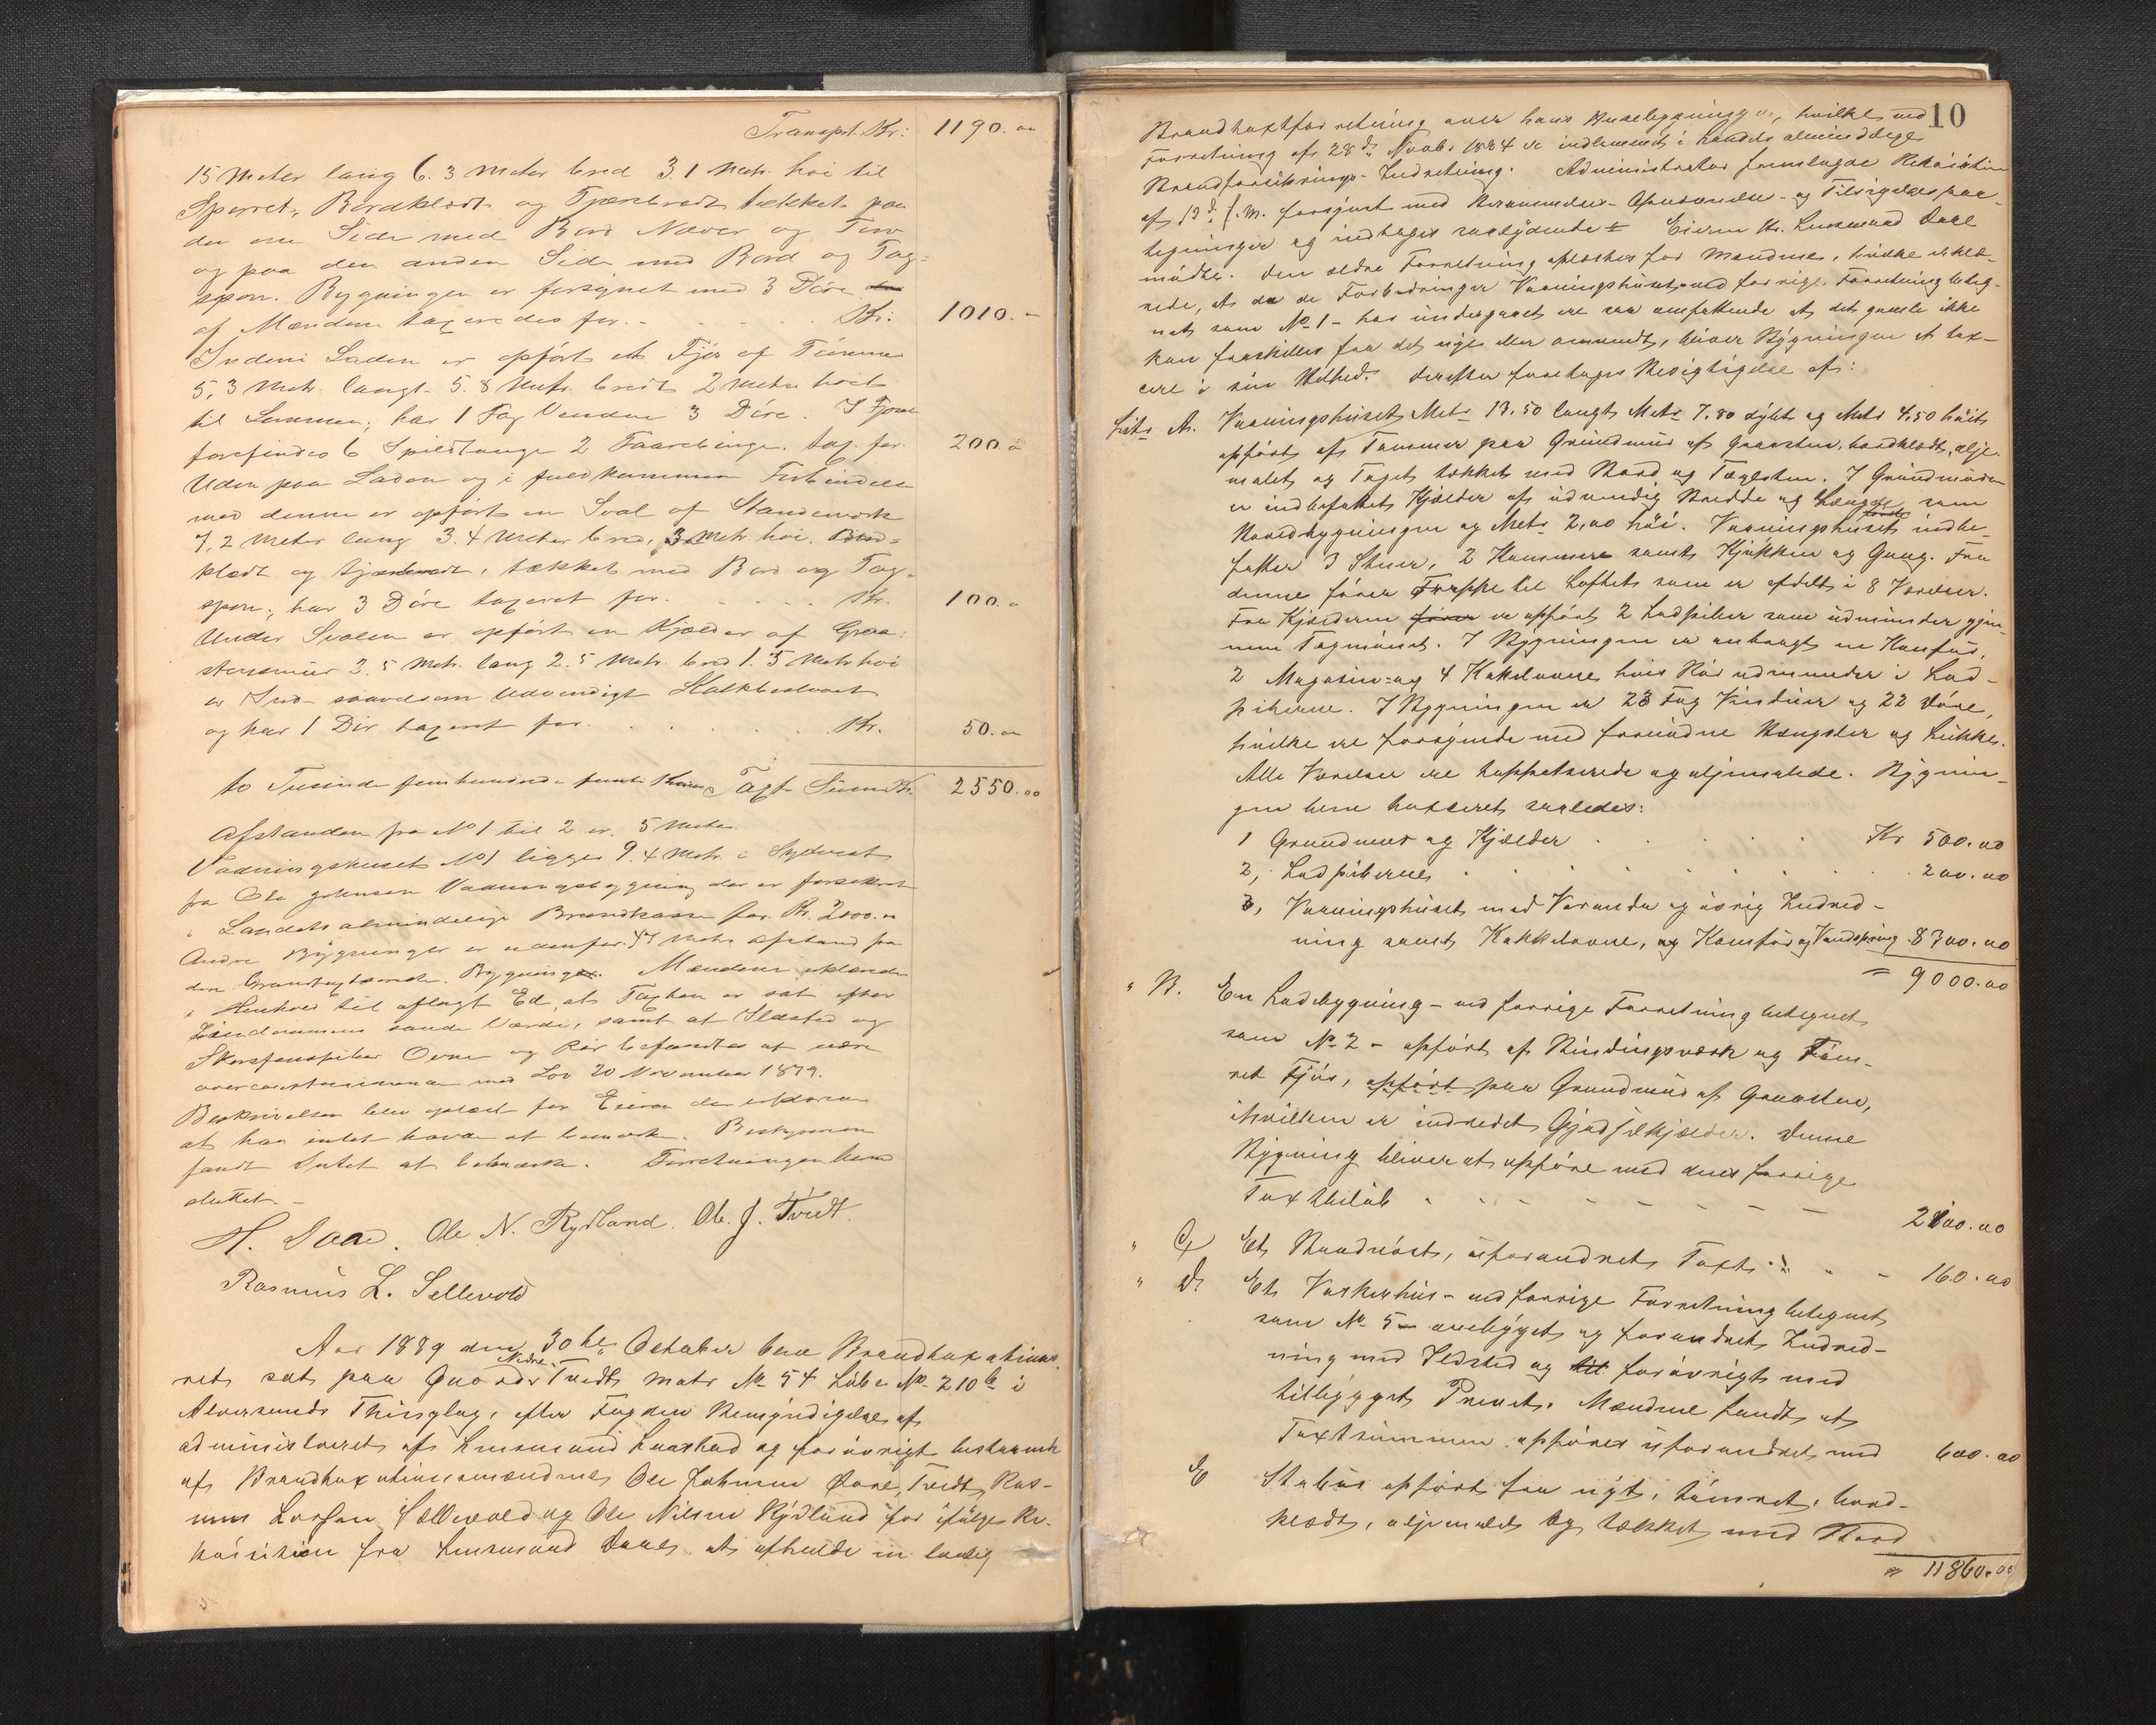 Transpt. Kr: 1190.00
15 Meter lang 6.3 Meter bred 3.1 Metr. høi til
Sperret, Bordklædt og Tjærebredt tækket paa
den ene Side med Bord Næver og Torv
og paa den anden Side med Bord og Tag-
spon. Bygningen er forsynet med 3 Døre
af Mændene taxeredes for. - Kr: 1010. -
Indeni Laden er opført et Fjøs af Tømmer
5,3 Metr. langt. 5.8 Metr. bredt 2 Meter høit
til Lemmen; har 1 Fag Vinduer 3 Døre. I Fjøset
forefindes 6 Spildtauge 2 Faarebinge. tax. for 200.00
Uden paa Laden og i fuldkommen Forbindelse
med denne er opført en Sval af Standværk
7,2 Meter lang 3.4 Meter bred, 3 Metr. høi. Bord=
klædt og tjærebredt, tækket med Bord og Tag-
spon; har 3 Døre taxeret for. Kr. 100.00
Under Svalen er opført en Kjælder af Graa-
stensmuur 3.5 Metr. lang 2.5 Metr. bred 1.5 Metr høi
er Ind- saavelsom Udvendigt Kalkbestrøget
og har 1 Dør taxeret for. Kr. 50.00
to Tusinde femhundrede femti Kroner Taxt Sum Kr. 2550.00
Afstanden fra No 1 til 2 er. 5 Meter.
Vaaningshuset No 1 ligger 9.4 Metr. i Sydvest
fra Ole Johnsen Vaaningsbygning der er forsikret
i Landets almindelige Brandkasse for Kr. 2000.00
Andre Bygninger er udenfor 47 Metr. Afstand fra
den Brandtaxerede Bygninger. Mændene erklærede
i Henhold til aflagt Ed, at Taxten er sat efter
Eiendommens sande Værdi, samt at Ildsted og
Skorstenspiber Ovne og Rør befandtes at være
overensstemmende med Lov 20 November 1879.
Beskrivelsen blev oplæst for Eieren der erklærede
at han intet havde at bemærke. Bestyreren
fandt Intet at bemærke. Forretningen blev
sluttet.-
H. Daae. Ole N. Rydland. Ole J. Tvedt.
Rasmus L. Sellevold
Aar 1889 den 30te October blev Brandtaxations
ret sat paa Gaarden Nedre Tvedt Matr No 54 Løbe No 210b i
Alversunds Thinglag, efter Fogdens Bemyndigelse af
administreret af Lensmand Laastad og forøvrigt bestaaende
af Brandtaxationsmændene Ole Johnsen Øvre Tvedt, Ras-
mus Larsen Sellevold og Ole Nilsen Rydland for ifølge Re-
kvisition fra Lensmand Daae at afholde en lovlig
10
Brandtaxtforretning over hans Husebygninger, hvilke ved
Forretning af 28de Novbr 1884 er indlemmet i Landets almindelige
Brandforsikrings-Indretning. Administrator fremlagde Rekvisition
af 13de f. M. forsynet med Berammelses- Opnævnelses- og Tilsigelsespaa-
tegninger og indtages saalydende. Eieren Hr. Lensmand Daae
mødte. Den ældre Forretning oplæstes for Mændene, hvilke erklæ-
rede, at da de Forbedringer Vaaningshuset - ved forrige Forretning beteg-
net som No 1 - har undergaaet ere saa omfattende at det gamle ikke
kan forskilles fra det nye eller omvendt, bliver Bygningen at tax-
cere i sin Helhed. Derefter foretages Besigtigelse af:
Litr A. Vaaningshuset, Metr 13.50 langt, Metr 7.80 dybt og Metr 4.50 høit
opført af Tømmer paa Grundmuur af Graasten, bordklædt, olje-
malet og Taget tækket med Bord og Tæglsten. I Grundmuren
er indbefattet Kjælder af udvendig Bredde og Længde som
Hovedbygningen og Metr 2,00 høi. Vaaningshuset indbe-
fatter 3 Stuer, 2 Kammere samt Kjøkken og Gang. Fra
denne fører Trappe til Loftet, som er afdelt i 8 Værelser.
Fra Kjælderen er opført 2 Ladpiber som udmunder gjen-
nem Tagmønet. I Bygningen er anbragt en Komfur,
2 Magasin- og 4 Kakelovne, hvis Rør udmunder i Lad-
piberne. I Bygningen er 23 Fag Vinduer og 22 Døre,
hvilke ere forsynede med fornødne Hængsler og Lukke.
Alle Værelser ere tappetserede og oljemalede. Bygnin-
gen blev taxeret saaledes:
1 Grundmur og Kjælder Kr 500.00
2, Ladpiberne 200.00
3, Vaaningshuset med Veranda og øvrig Indred-
ning samt Kakkelovne, og Komfur og Vandspring 8300.00
= 9000.00
" B. En Ladebygning - ved forrige Forretning betegnet
som No 2 - opført af Bindingsværk og Tøm-
ret Fjøs, opført paa Grundmur af Graasten,
i hvilken er indredet Gjødselkjælder. Denne
Bygning bliver at opføre med dens forrige
Taxtbeløb 2100.00
" C Et Baadnøst, uforandret Taxt 160.00
" D. Et Vaskerhus - ved forrige Forretning betegnet
som No 5 - ombygget og forandret Indred-
ning med Ildsted og forøvrigt med
tilbygget Privet. Mændene fandt at
Taxtsummen opføres uforandret med 600.00
E Stabur opført fra nyt, tømret, bord-
klædt, oljemalet og tækket med Bord
= 11860.00